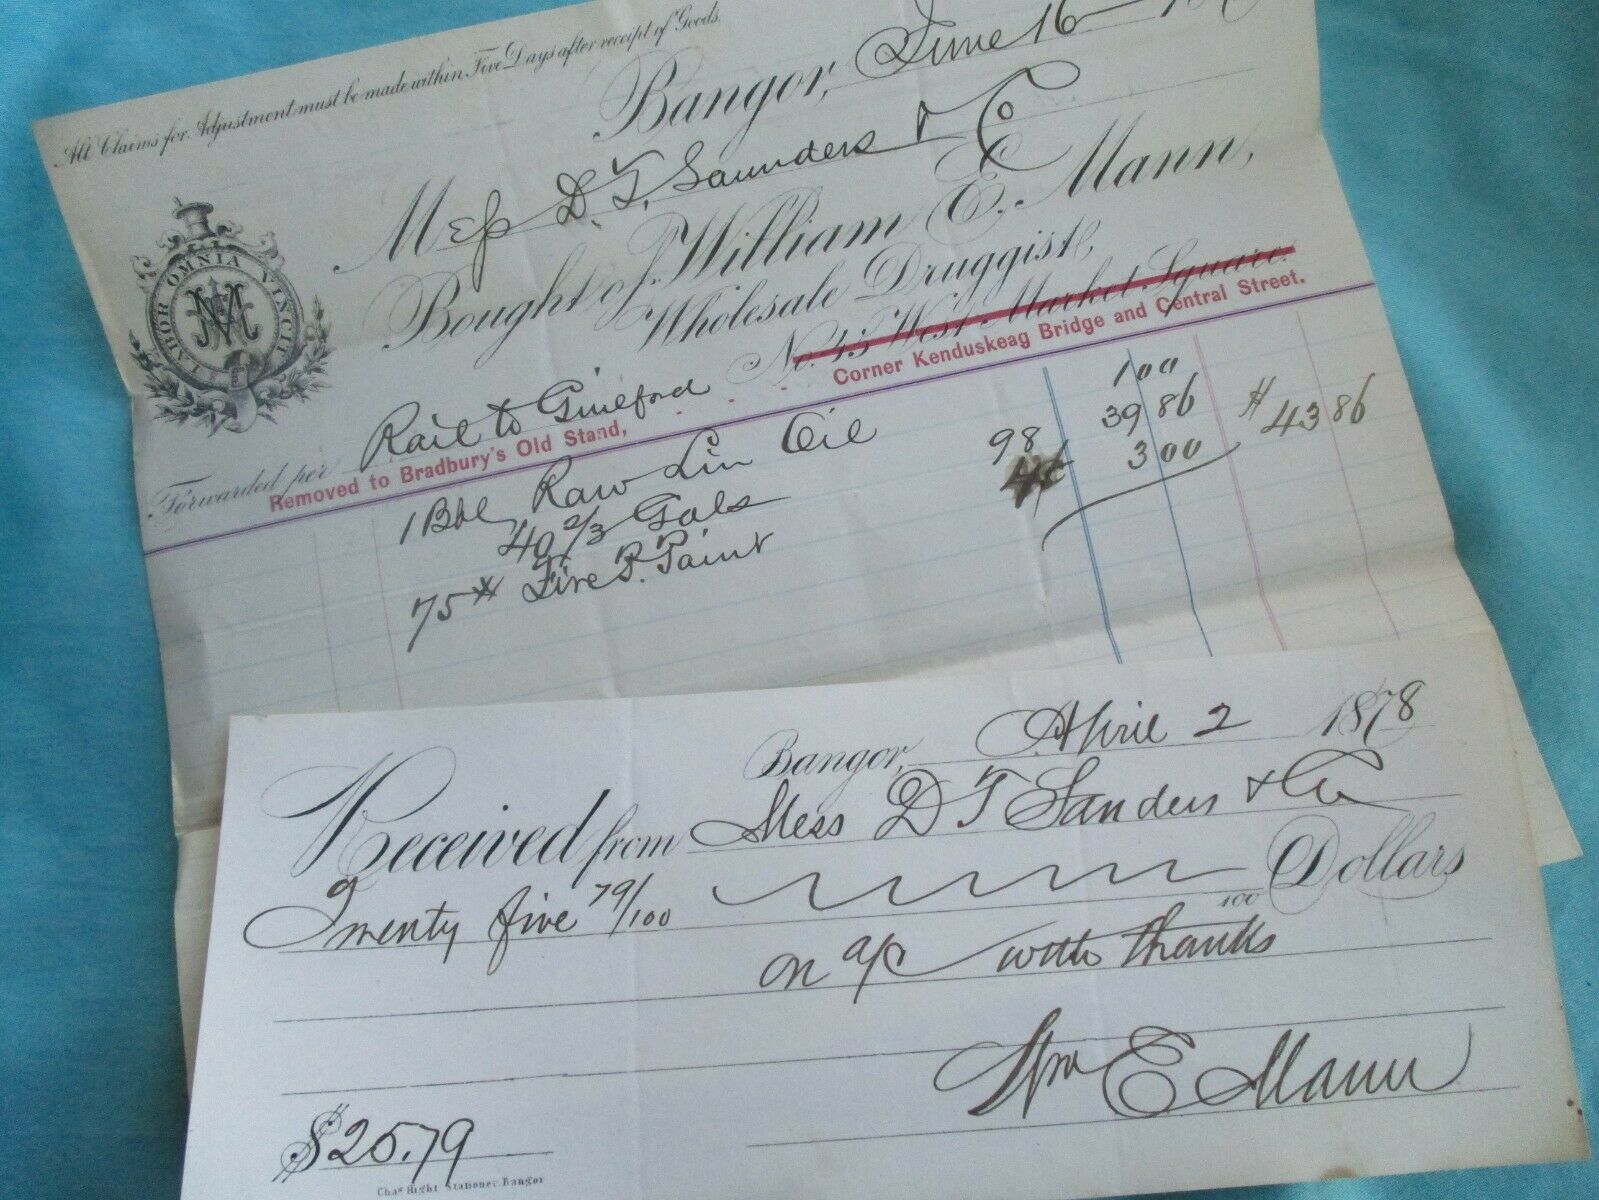 All Claims for Adjustment must be made within Five Days after receipt of Goods.
Bangor, June 16
Mess D. T. Saunders & Co
Bought of William E. Mann,
Wholesale Druggist,
No. 45 West Market Square.
Corner Kenduskeag Bridge and Central Street.
LABOR OMNIA VINCIT
Forwarded per Rail to Guilford
Removed to Bradbury's Old Stand,
1 Bbl Raw Lin Oil 1 00
40 2/3 Gals 98 39 86
75# Fire P. Paint 4c 3 00 $ 43 86
Bangor, April 2 1878
Received from Mess D T Sanders & Co
Twenty five 79/100 100 Dollars
on a/c with thanks
Wm E Mann
$25.79
Chas Hight Stationer, Bangor